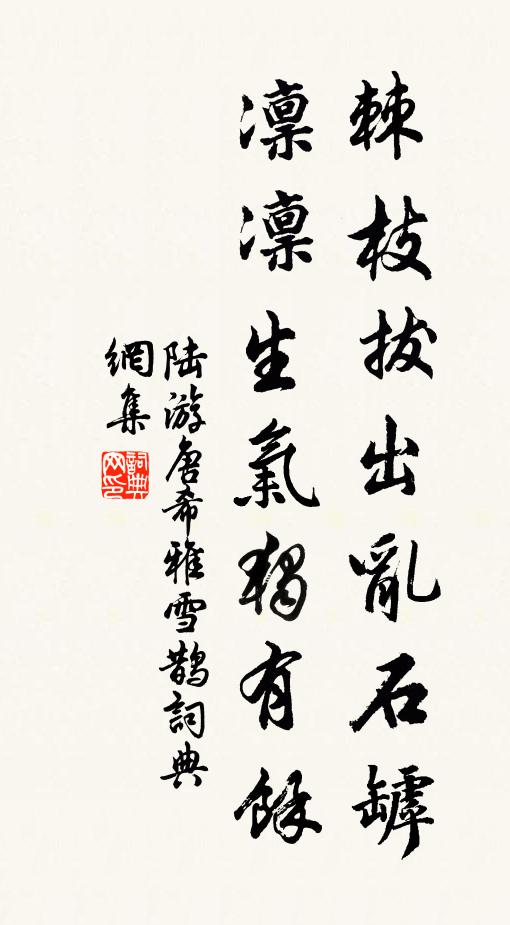 棘枝拔出亂石罅
凜凜生氣獨有餘
陸游唐希雅雪鵲詞典
網集
詞典網印